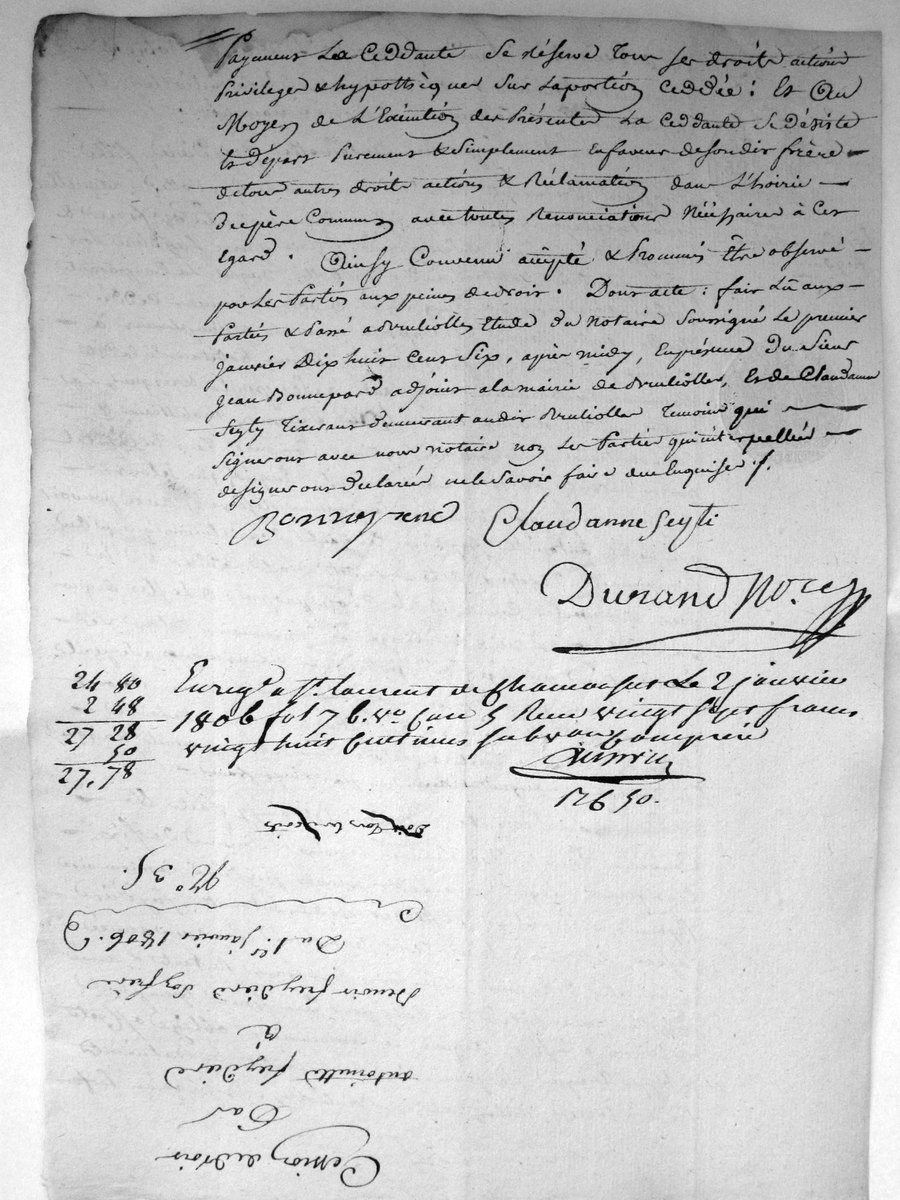 Payement La Ceddante se réserve tous ses droits actions
Privileges & hypotheques sur laportion Ceddée : Et Au
Moyen de L'Exécution des Présentes La Ceddante se désiste
Et départ Purement & simplement Enfaveur desondit frère –
detous autres droits actions & Réclamations dans L'hoirie –
depère Commun avectoutes Renonciations Nécéssaires à Cet
Egard. Ainsy Convenu accepté & Promis Être observé –
par Les Parties aux peines dedroit. Dont acte : fait Lû aux –
Parties & Passé aBrulliolles Etude du Notaire soussigné Le premier
janvier Dix huit Cent Six, après midy, Enprésence du sieur
jean Bonnepard adjoint alamairie de Brulliolles, Et de Claudanne
Seyty Tixerant demeurant audit Brulliolles Temoins qui
signeront avec nous notaire non Les Parties qui interpellées –
designer ont declarées nele savoir faire due Enquises ./.
Claudanne Seyti
Durand No.re
24 80
2 48
27 28
50
27. 78
Enreg.é a St. laurent de Chamousset Le 2 janvier
1806 fol 76. v.o Case 5 Reçu vingt sept francs
vingt huit Centimes subvon Comprise
126 50.
N.o 35.
Du 1.er janvier 1806.
Benoit freydiere Son frère
à
antoinette freydiere
Par
Cession de droits